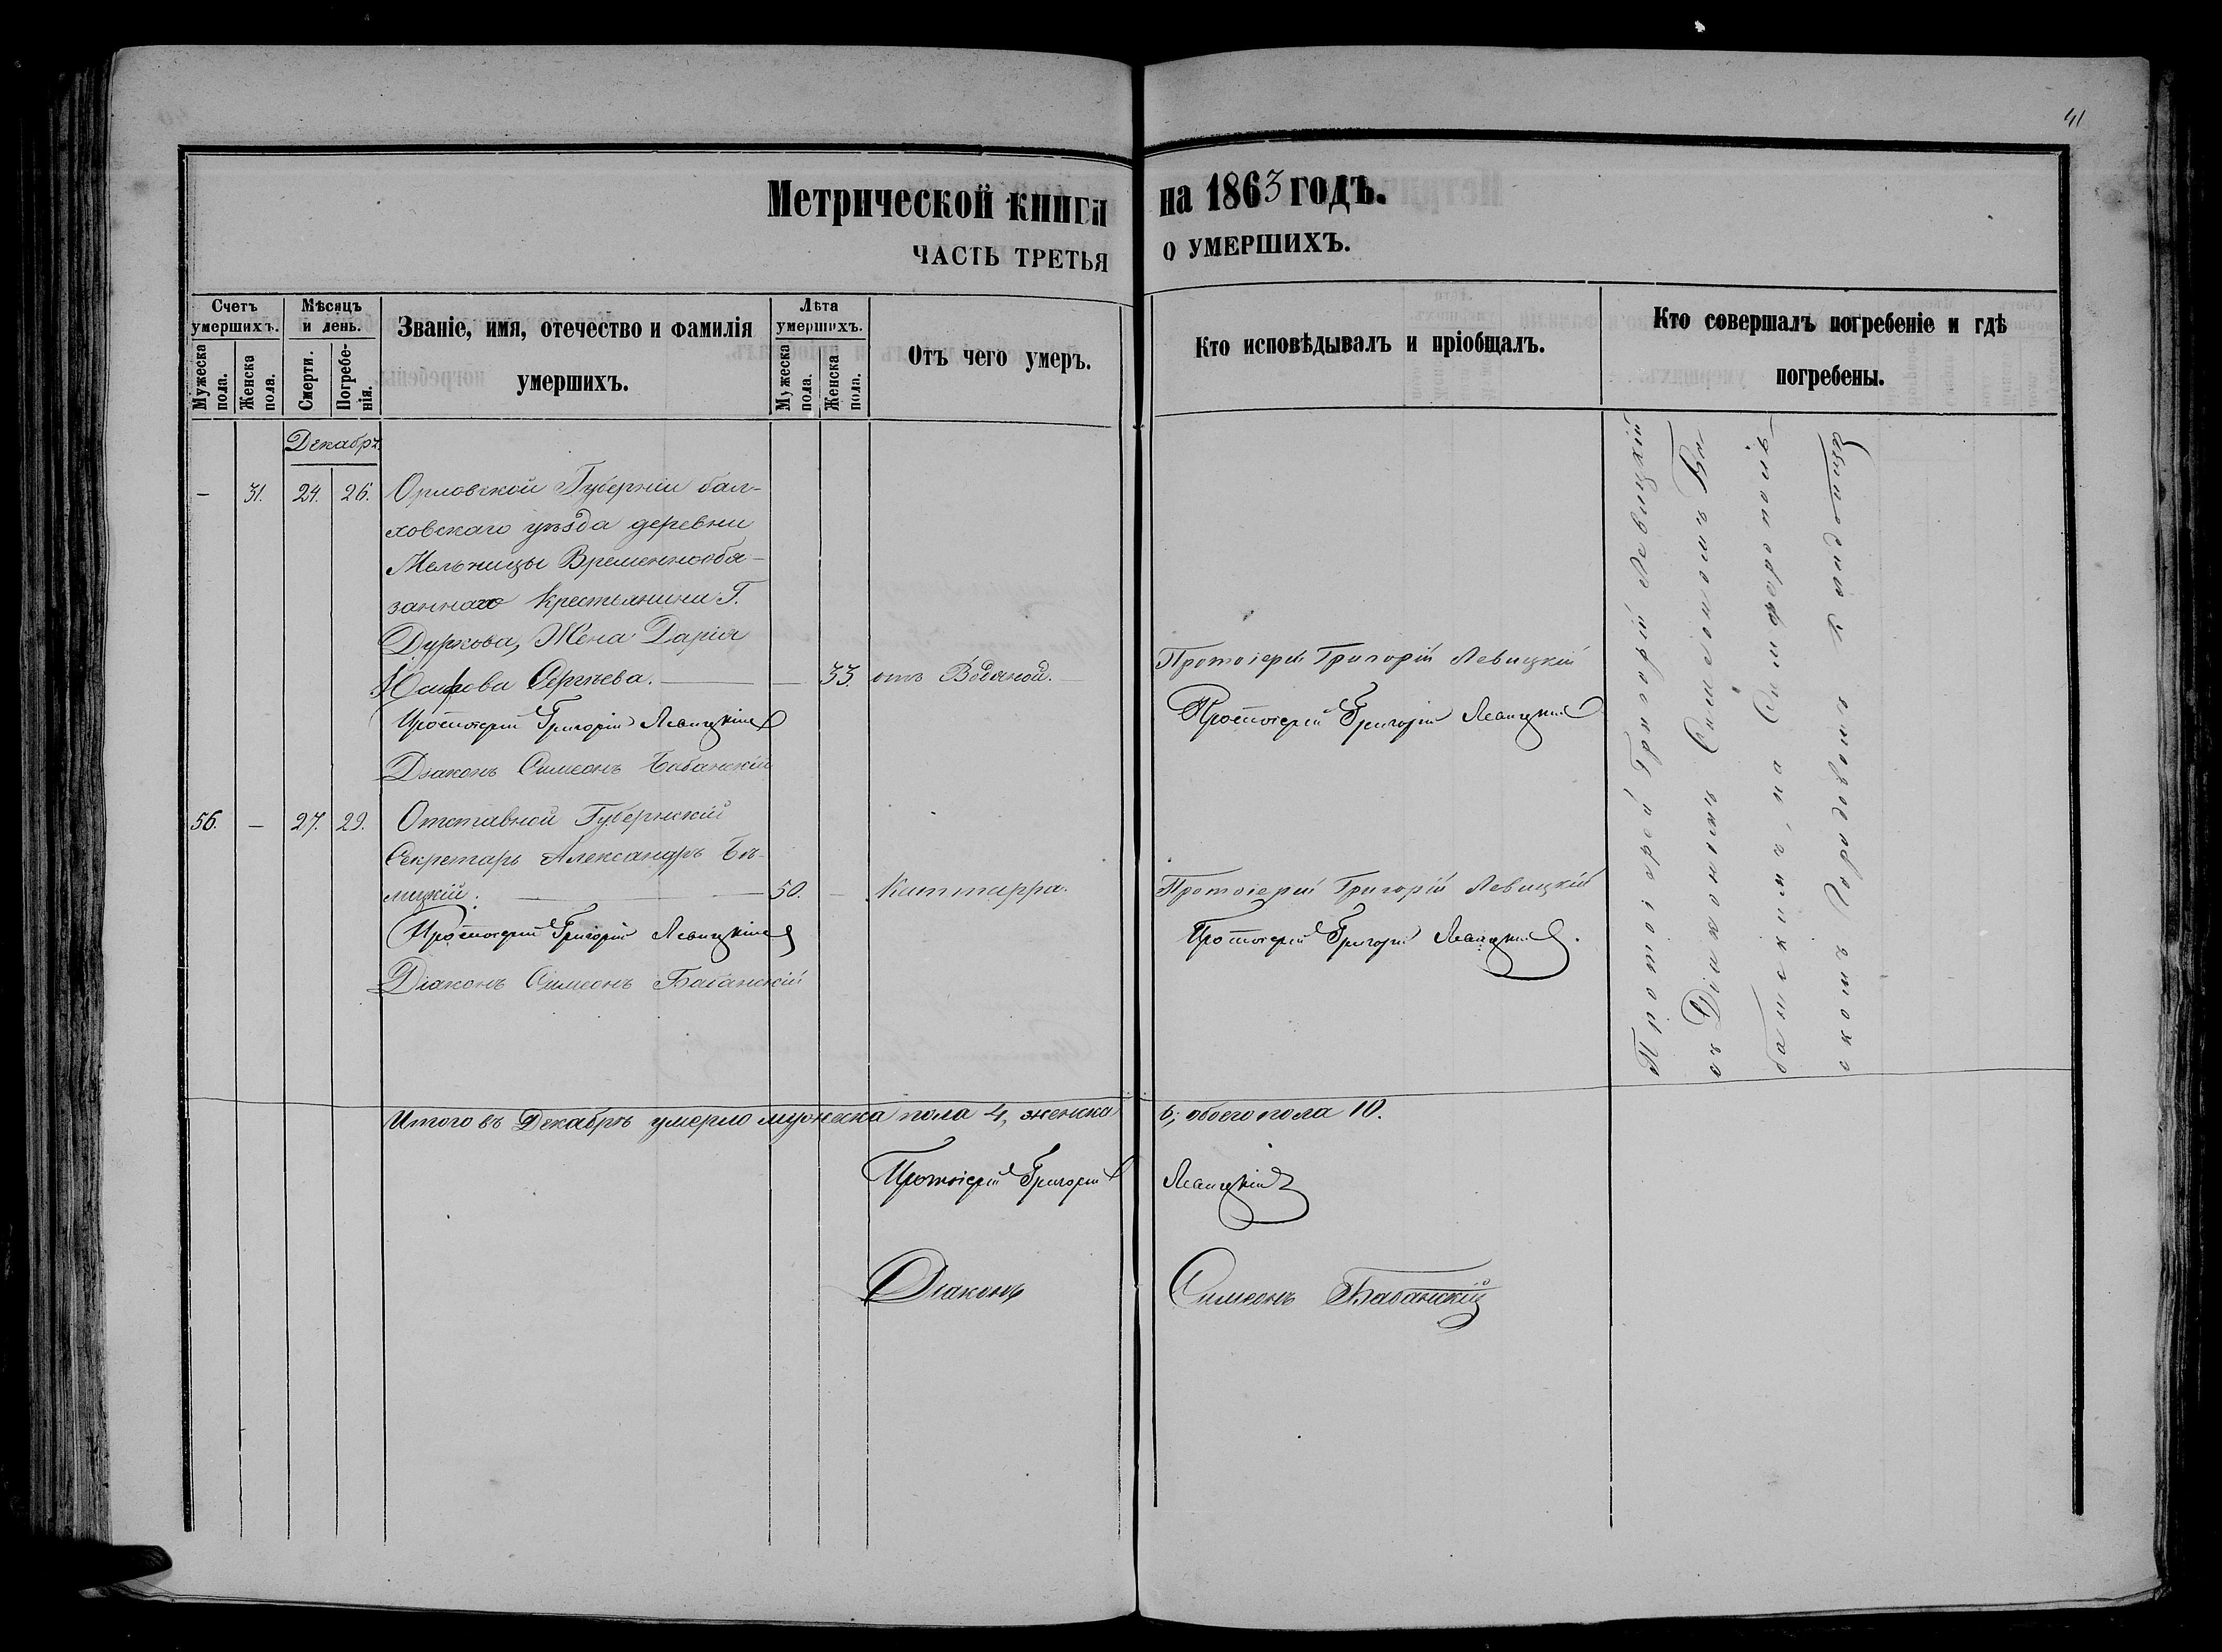 41
Метрической книги на 1863 годъ.
ЧАСТЬ ТРЕТЬЯ о УМЕРШИХЪ.
Счетъ умершихъ.
Мужеска пола.
Женска пола.
Мѣсяцъ и день.
Смерти.
Погребенія.
Званіе, имя, отечество и фамилія
умершихъ.
Лѣта умершихъ.
Мужеска пола.
Женска пола.
Отъ чего умеръ.
Кто исповѣдывалъ и пріобщалъ.
Кто совершалъ погребеніе и гдѣ
погребены.
Декабрь
— 31. 24. 26. Орловской Губерніи бал-
ховскаго уѣзда деревни
Мельницы Временнообя-
заннаго Крестьянина Г.
Дуркова, Жена Дарія
Сергѣева. — — 33. отъ Водяной. Протоіерей Григорій Левицкій
Протоіерей Григорій Левицкій Протоіерей Григорій Левицкій
Діаконъ Симеонъ Бабанскій
56. — 27. 29. Отставной Губернскій
Секретарь Александръ Бѣ-
лицкій. — 50. — Каттарра. Протоіерей Григорій Левицкій
Протоіерей Григорій Левицкій Протоіерей Григорій Левицкій.
Діаконъ Симеонъ Бабанскій
Протоіерей Григорій Левицкій
съ Діакономъ Симеономъ Ба-
банскимъ, на Симферополь-
скомъ Городовомъ Кладбищѣ
Итого въ Декабрѣ умерло мужеска пола 4, женска 6, обоего пола 10.
Протоіерей Григорій Левицкій
Діаконъ Симеонъ Бабанскій